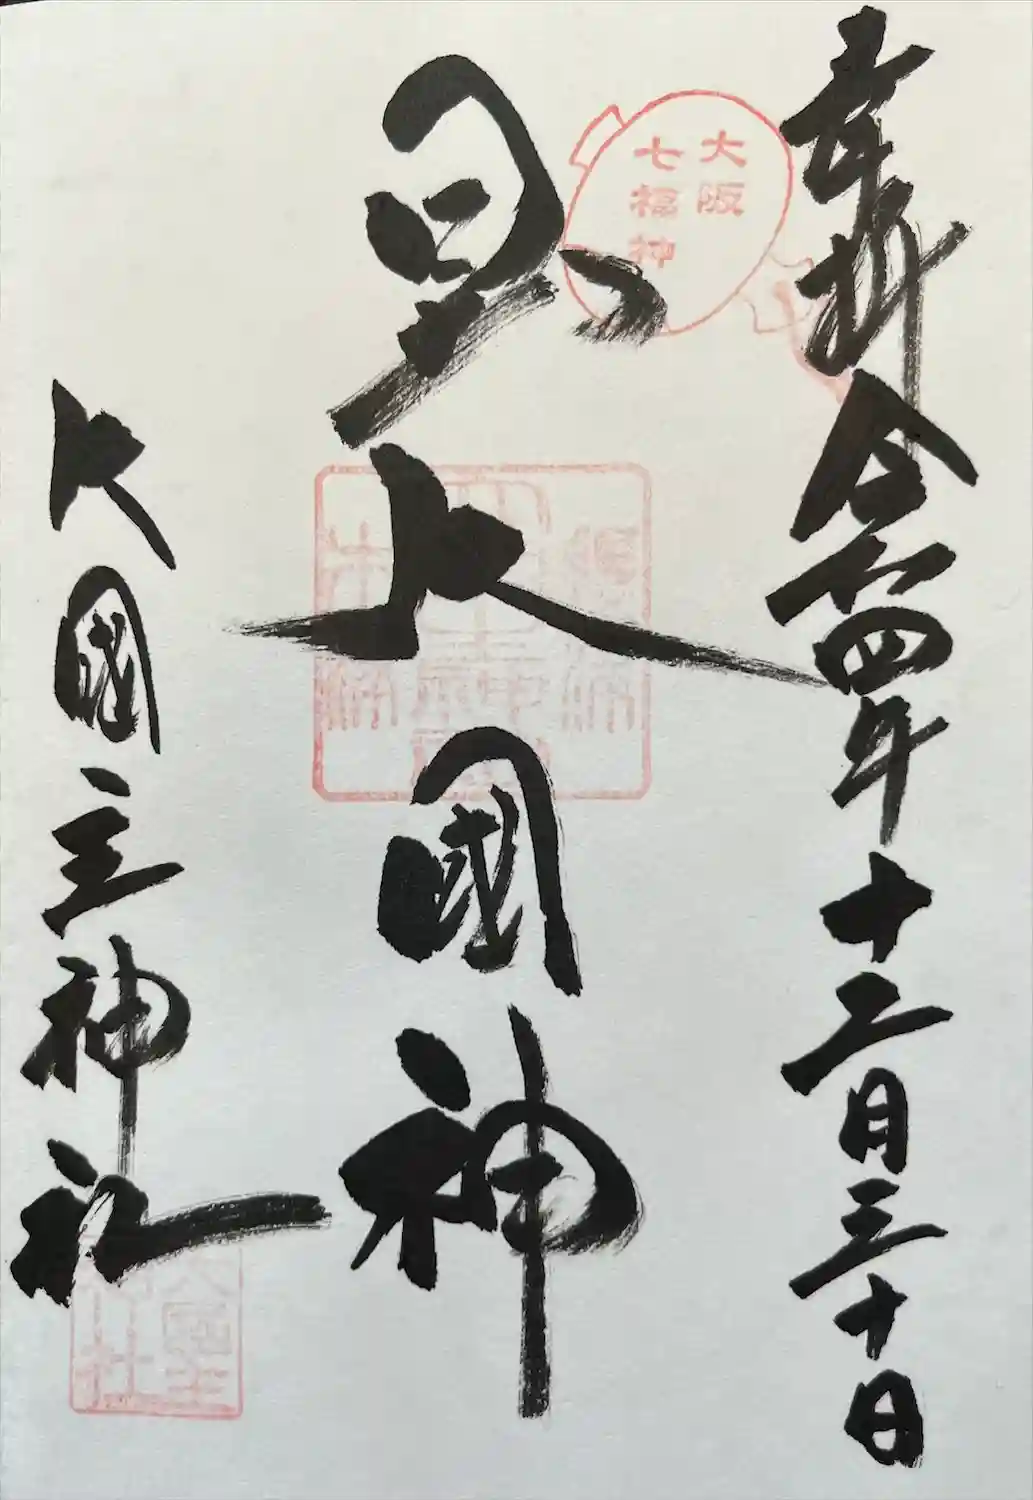 奉拝 令和四年十二月三十日
大阪
七福神
大國神
大國主神社
大国主
社